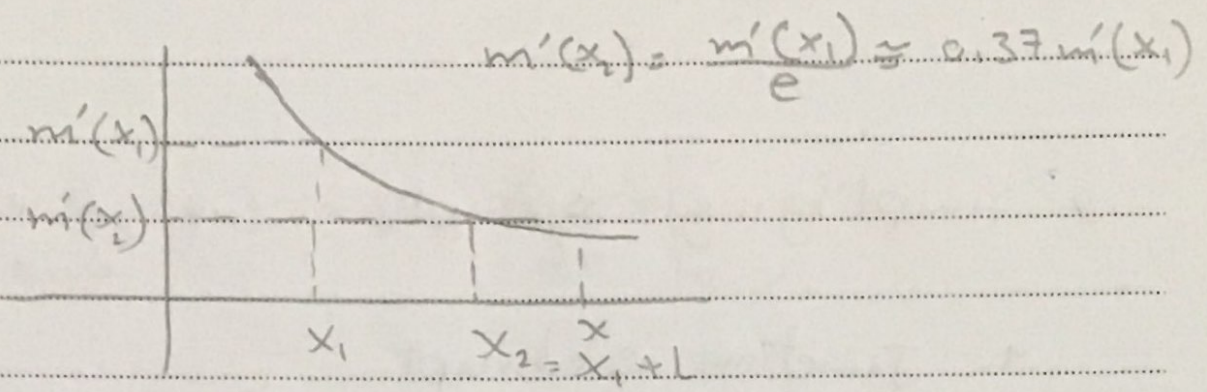 m'(x₂) = m'(x₁)/e ≅ 0.37 m'(x₁)
m'(x₁)
m'(x₂)
x₁
x₂ = x₁ + L
x